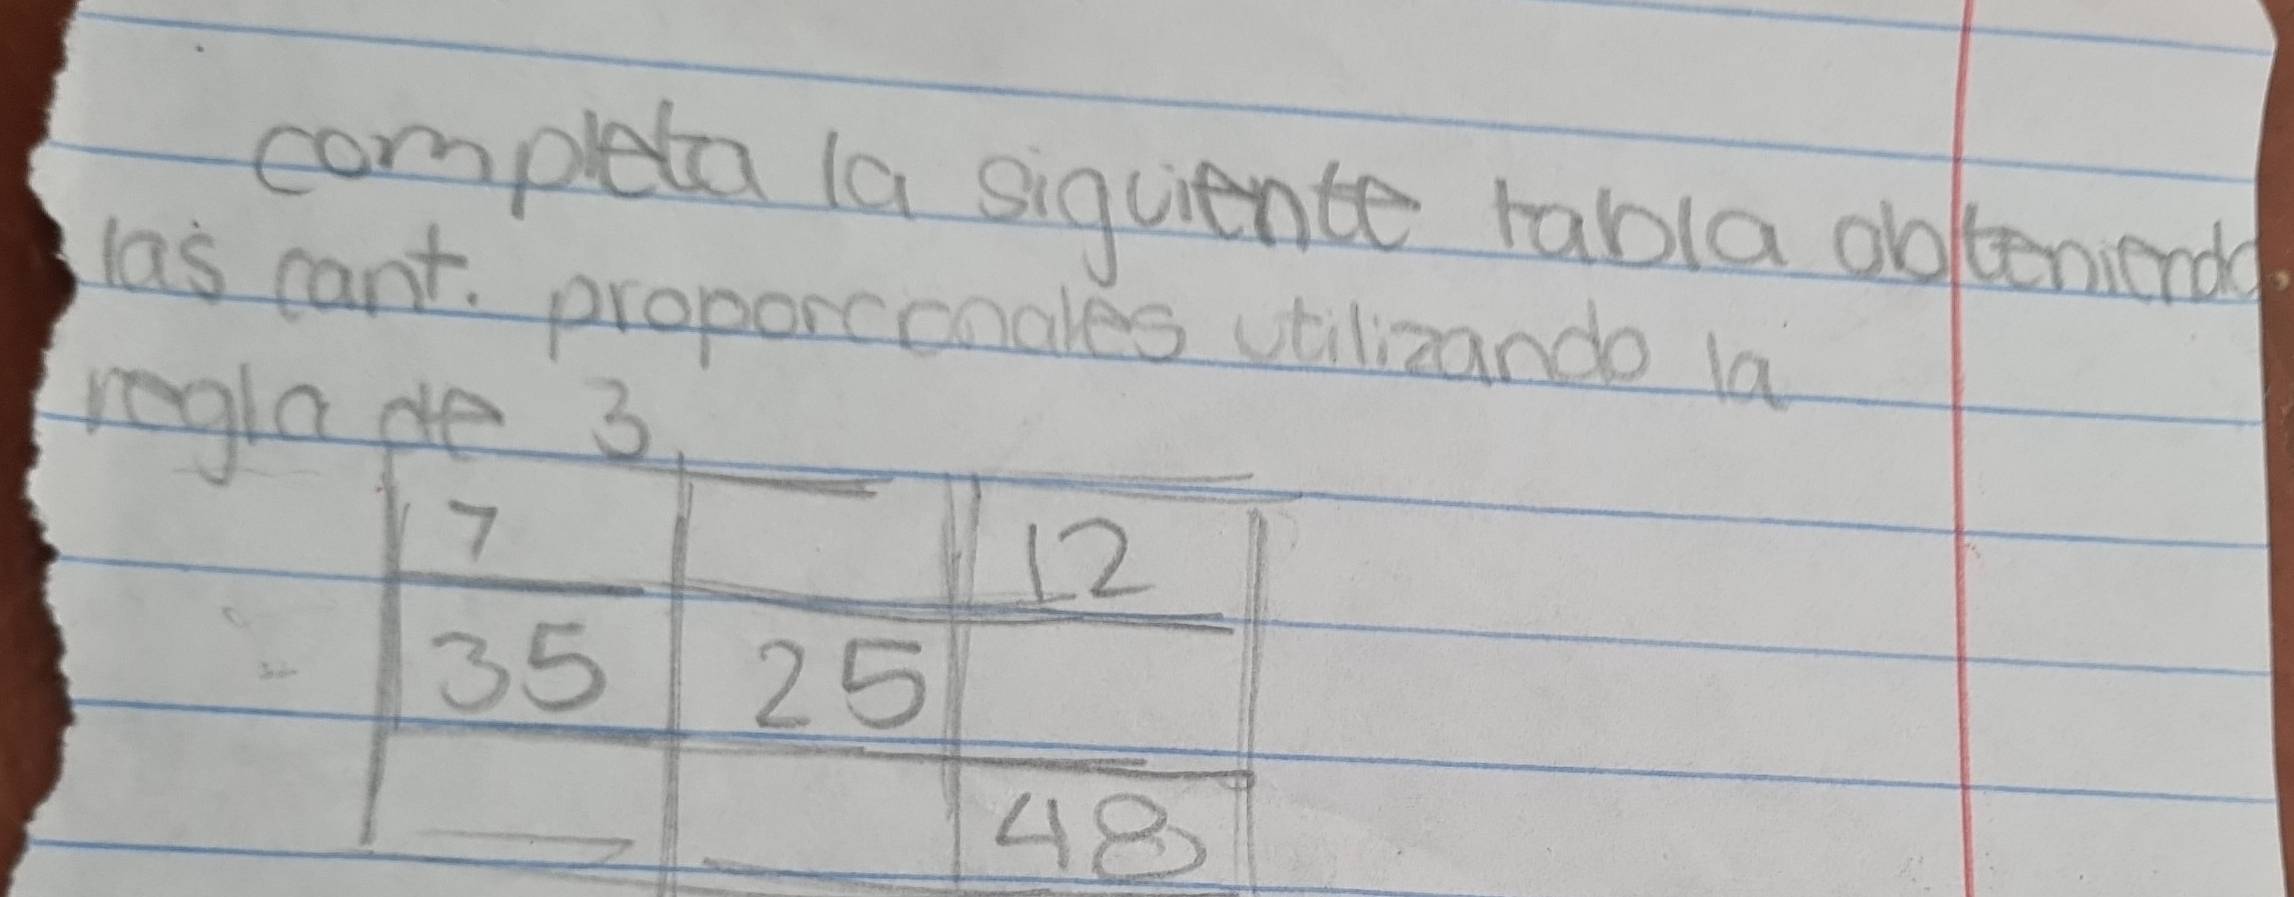 completa la siguiente tabla obteniendo
las cant. proporcconales utilizando la
regla de 3
7 12
35 25
48